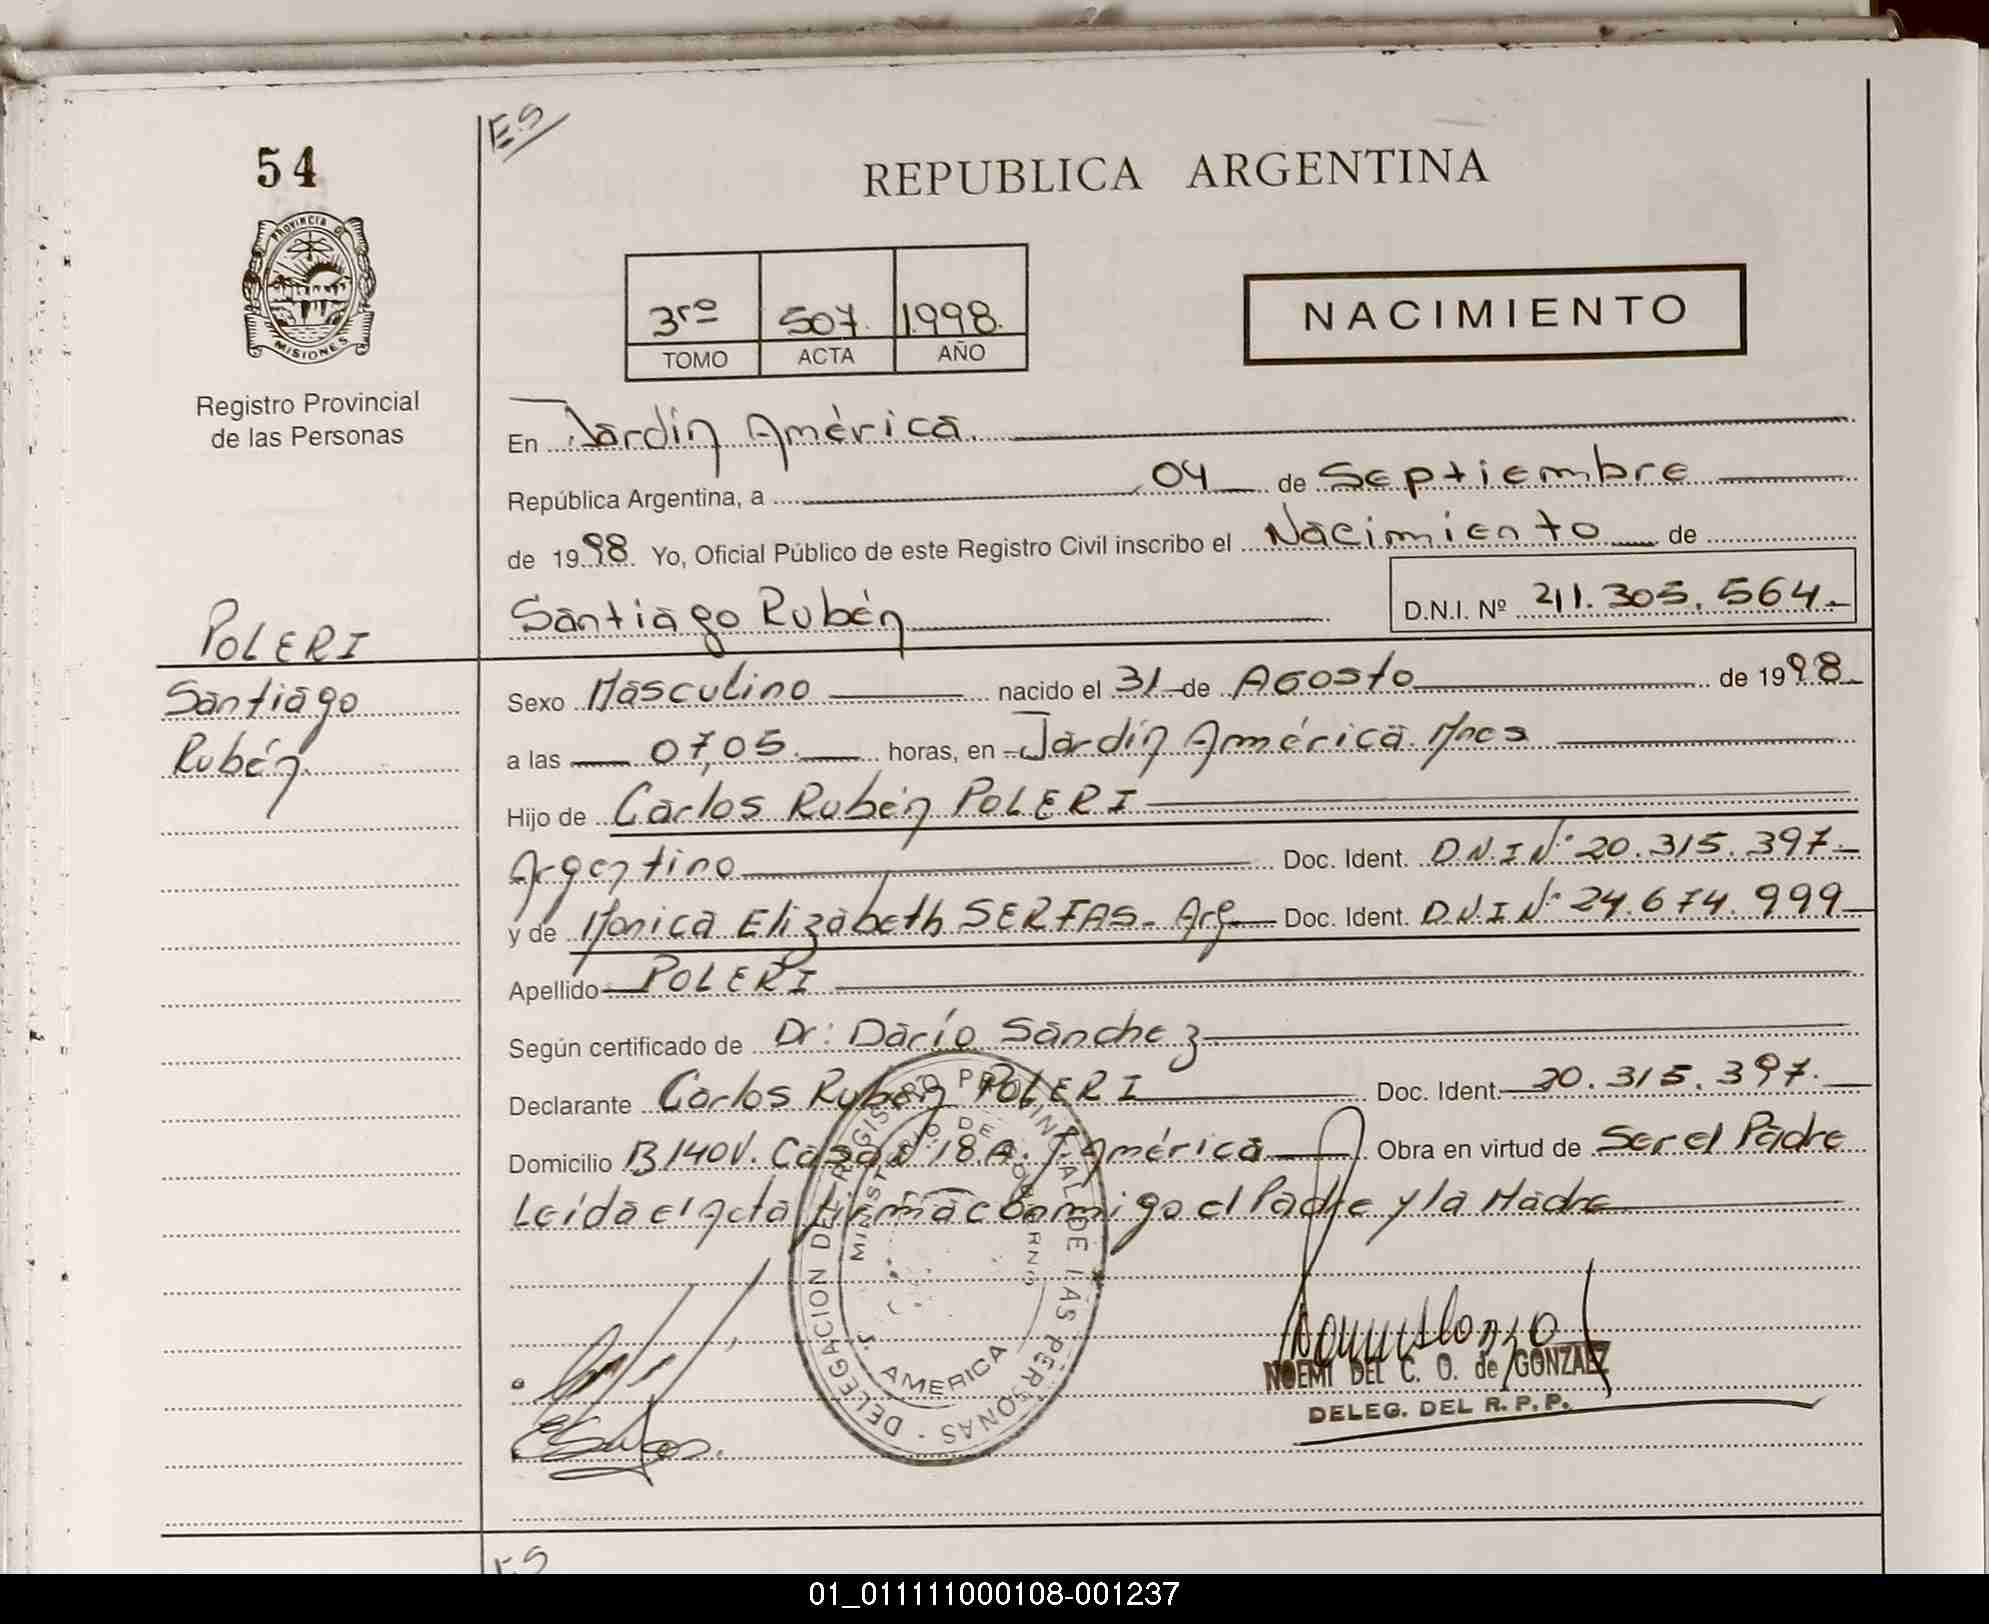 ES
54
REPUBLICA ARGENTINA
PROVINCIA DE
MISIONES
3ro 507. 1.998.
TOMO ACTA AÑO
NACIMIENTO
Registro Provincial
de las Personas
En Jardín América.
República Argentina, a 04 de Septiembre
de 1998. Yo, Oficial Público de este Registro Civil inscribo el Nacimiento de
Santiago Rubén D.N.I. Nº 211.305.564.-
POLERI
Santiago
Rubén.
Sexo Masculino nacido el 31 de Agosto de 1998.
a las 07,05. horas, en Jardín América. Mnes
Hijo de Carlos Rubén POLERI
Argentino Doc. Ident. D.N.I Nº 20.315.397
y de Monica Elizabeth SERFAS- Arg Doc. Ident. D.N.I Nº 24.674.999
Apellido POLERI
Según certificado de Dr: Darío Sánchez
Declarante Carlos Rubén POLERI Doc. Ident. 20.315.397.
Domicilio B 140V. Casa Nº 18 A. J. América Obra en virtud de Ser el Padre
Leída el Acta, firma conmigo el Padre y la Madre
DELEGACION DEL REGISTRO PROVINCIAL DE LAS PERSONAS
MINISTERIO DE GOBIERNO
J. AMERICA
NOEMI DEL C. O. de GONZALEZ
DELEG. DEL R. P. P.
ES
01_011111000108-001237